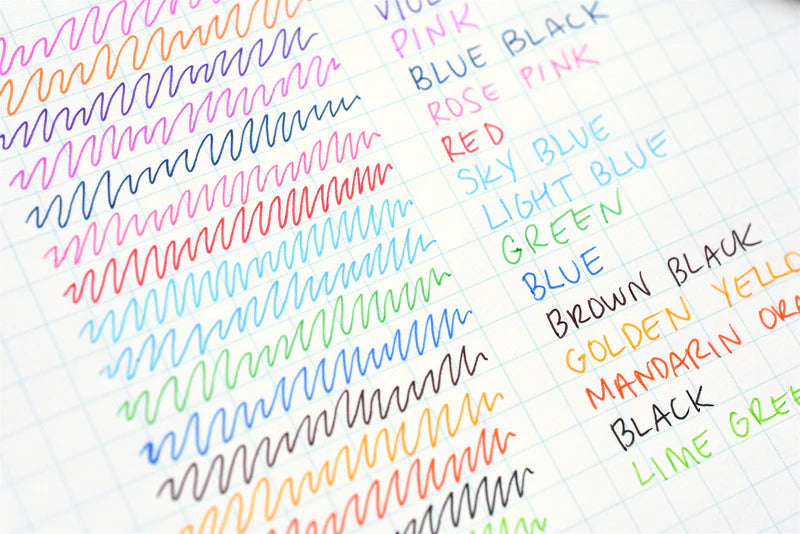 PINK
BLUE BLACK
ROSE PINK
RED
SKY BLUE
LIGHT BLUE
GREEN
BLUE
BROWN BLACK
GOLDEN YELLO
MANDARIN ORA
BLACK
LIME GREE